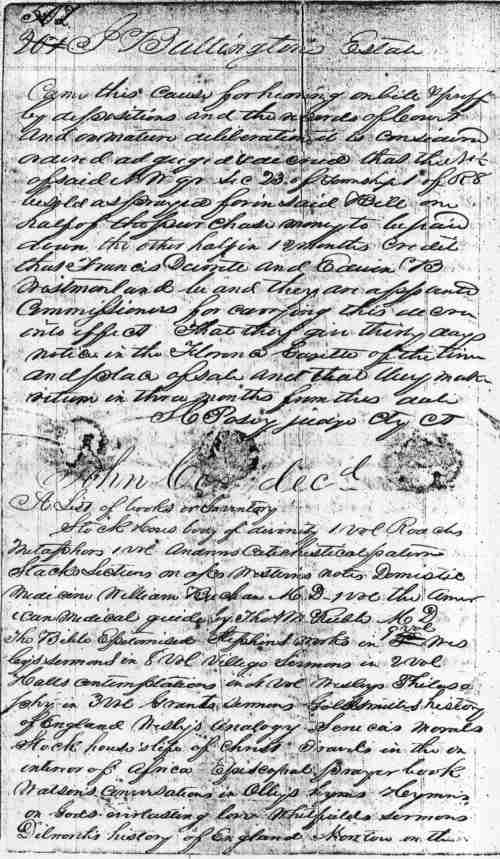 J Ballingtons Estate
Came this cause for hearing on bill & proff
by depositions and the records of Court
and on mature deliberation it is considered
ordered adjudged & decreed that the
of said N W qr Sec 23 of Township 1 of R 8
be sold as prayed for in said Bill one
half of the purchase money to be paid
down the other half in 12 months credit
that Francis and Edwin B
Westmoreland be and they are appointed
Commissioners for carrying this decree
into effect That they give thirty days
notice in the Florence Gazette of the time
and place of sale and that they make
return in three months from this date
S C Posey judge Cty Ct
John Cox decd
A List of books in Inventory
Stock House body of divinity 1 vol Roachs
Metaphors 1 vol
Stacks Lectures on acts Westerns notes Domestic
Medicine William Buchan M D 1 vol the Amer
ican Medical guide by Thos W Ruble M D
The Bible Epitomised Stephens works in 9 vol Wes
leys sermons in 8 vol Village Sermons in 2 vol
Halls contemplations in 4 vol Wesleys Philoso
phy in 3 vol Grants sermons Goldsmiths history
of England Westly's Analogy Seneca's Morals
Stock house's life of Christ Travels in the in
interior of Africa Episcopal prayer book
Watson's Conversations in Olleys hymns Hymns
on Gods everlasting love Whitfields sermons
Dilmonts history of England on the